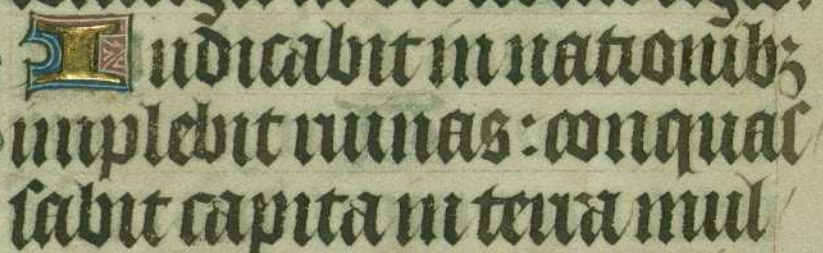 Iudicabit in nationibꝫ
implebit ruinas: conquaſ
ſabit capita in terra mul